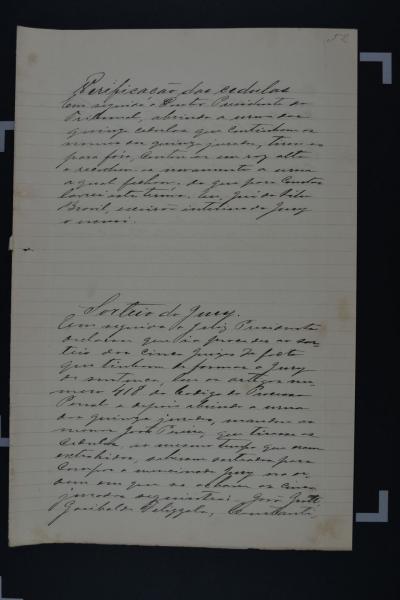 52
Verificação das cedulas
Em seguida o Doutor Presidente do
Tribunal, abrindo a urna das
quinze cedulas que continham os
nomes dos quinze jurados, tirou-as
para fóra, contou-as em voz alta
e recolheu-as novamente a urna
a qual fechou, do que para constar
lavrei este termo. Eu,
Brasil, escrivão interino do Jury
o escrevi.
Sorteio do Jury.
Em seguida o Juiz Presidente
declarou que ia proceder ao sor-
teio dos cinco Juizes de facto
que tinham de formar o Jury
de sentença, leu os artigos nu-
mero 418 do Codigo do Processo
Penal e depois abrindo a urna
dos quinze jurados, mandou ao
menor José Pereira, que tirasse as
cedulas, ao mesmo tempo que eram
extrahidas, sahiram sorteados para
compor o mencionado Jury na or-
dem em que se acham os cinco
jurados seguintes: João
Garibaldi Constanti,